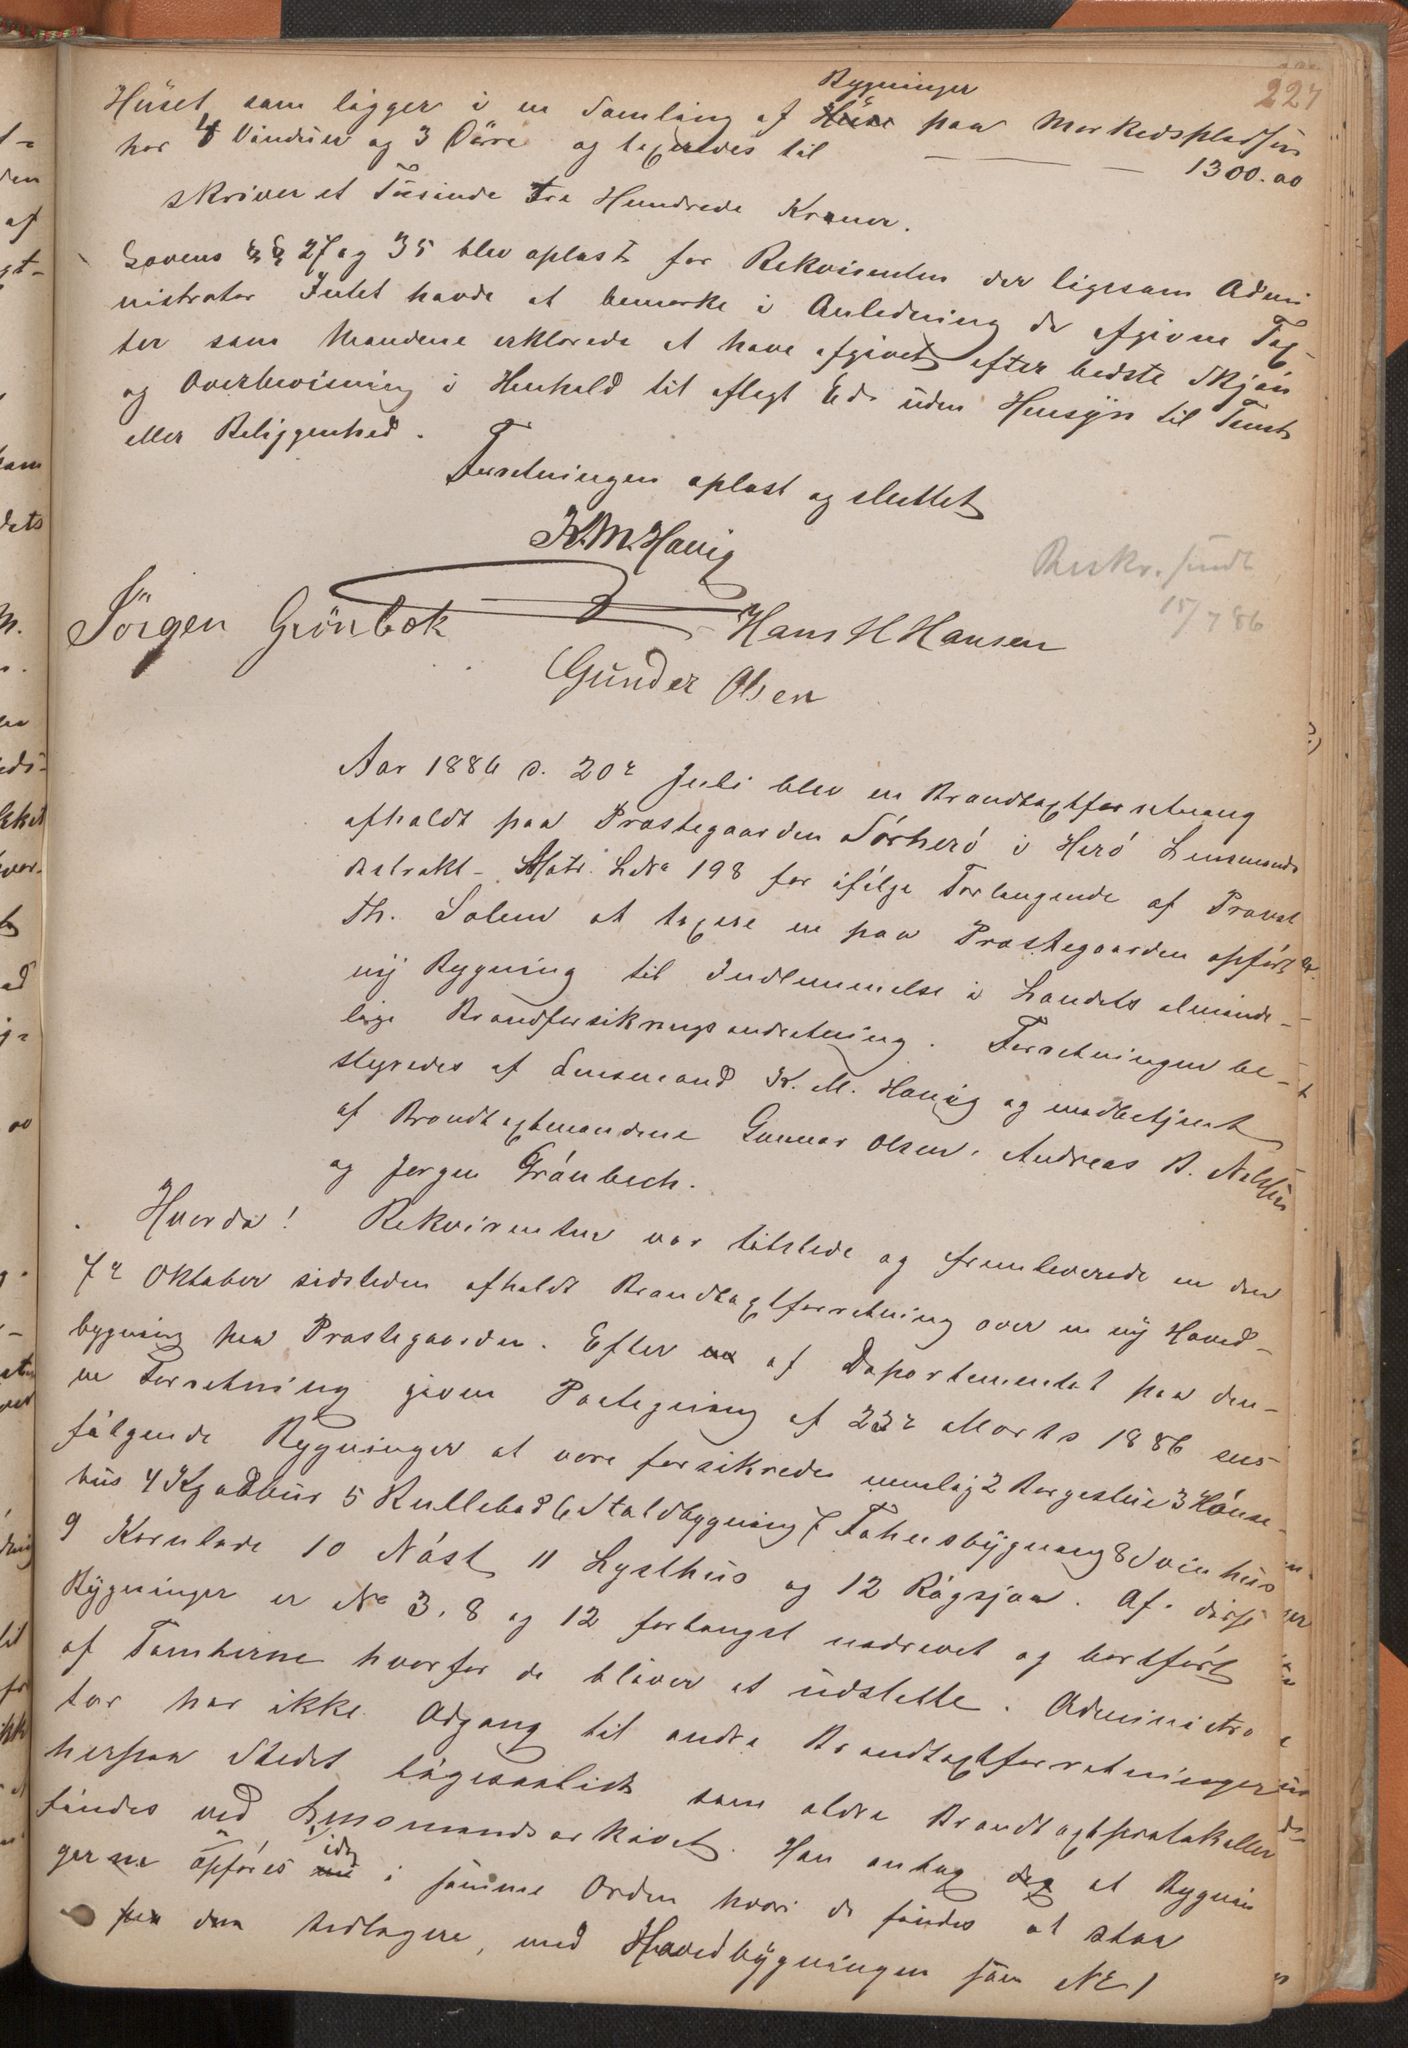 227
Bygninger
Huset som ligger i en Samling af Huse paa Markedspladsen
har 4 Vinduer og 3 Döre og taxeredes til — — 1300.00
skriver et Tusinde Tre Hundrede Kroner.
Lovens §§ 27 og 35 blev oplæst for Rekvirenten der ligesom Admi
nistrator Intet havde at bemærke i Anledning de afgivne Tax
ter som Mændene erklærede at have afgivet efter bedste Skjön
og Overbevisning i Henhold til aflagt Ed uden Hensyn til Tomt
eller Beliggenhed.
Forretningen oplæst og sluttet
K.M. Havig
Bekr. sendt
15/7 86
Jörgen Grönbek Hans H Hansen
Gunder Olsen
Aar 1886 d. 20de Juli blev en Brandtaxtforretning
afholdt paa Præstegaarden Sörherö i Herö Lensmands
distrikt - Matr. LNo 198 for ifölge Forlangende af Provst
Th. Solem at taxere en paa Præstegaarden opfört
ny Bygning til Indlemmelse i Landets alminde-
lige Brandforsikringsindretning. Forretningen be-
styredes af Lensmand K. M. Havig og medbetjent
af Brandtaxtmændene Gunnar Olsen, Andreas B. Nilssen
og Jørgen Grönbech.
Hvorda! Rekvirenten var tilstede og fremleverede en den
7de Oktober sidstleden afholdt Brandtaxtforretning over en ny Hoved-
bygning paa Præstegaarden. Efter af Departementet paa den-
ne Forretning given Paategning af 23de Marts 1886 sees
fölgende Bygninger at være forsikrede nemlig 2 Borgestue 3 Hönse-
hus 4 Kjødbur 5 Rullebod 6 Staldbygning 7 Fähusbygning 8 Svinhus
9 Kornlade 10 Nöst 11 Lysthus og 12 Rögsjaa. Af disse
Bygninger er No 3, 8 og 12 forlængst nedrevet og bortfört
af Tomterne hvorfor de bliver at udslette. Administra
tor har ikke Adgang til andre Brandtaxtforretninger
herpaa Stedet ligesaalidt som ældre Brandtaxtprotokoller
findes ved Lensmandsarkivet. Han antog dog at Bygnin
gerne opföres i samme Orden hvori de findes at staa
den tidligere, med Hovedbygningen som No 1